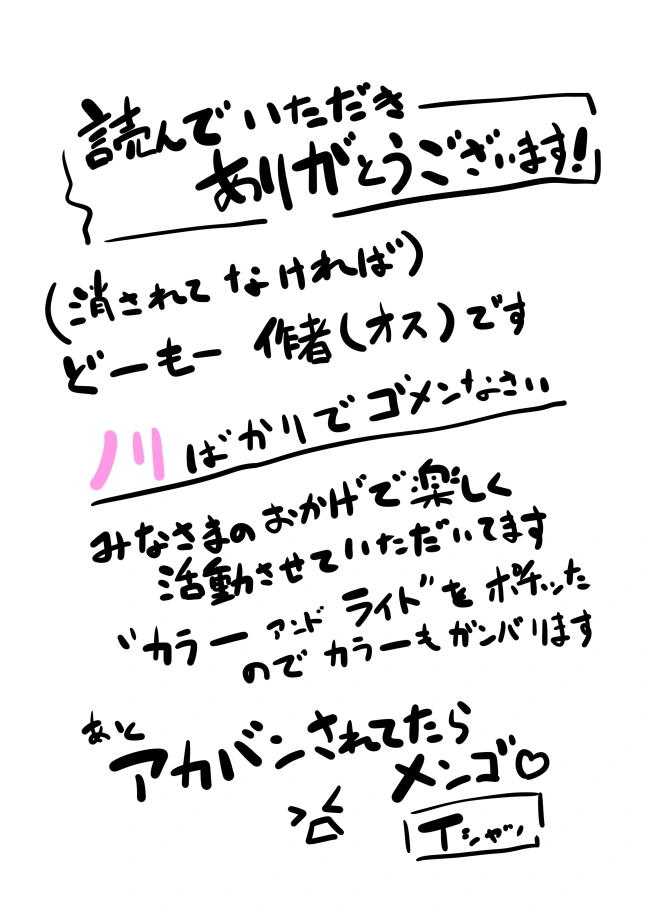 読んでいただき
ありがとうございます!
(消されてなければ)
どーもー 作者(オス)です
ノリばかりでゴメンなさい
みなさまのおかげで楽しく
活動させていただいてます
"カラー アンド ライト"を ポチッた
のでカラーもガンバります
あと
アカバンされてたら
メンゴ♡
Tシャツ